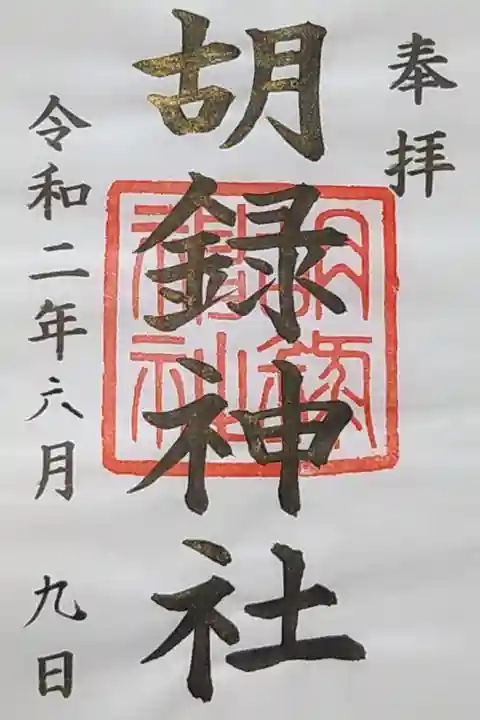 奉拝
胡録神社
令和二年六月 九日